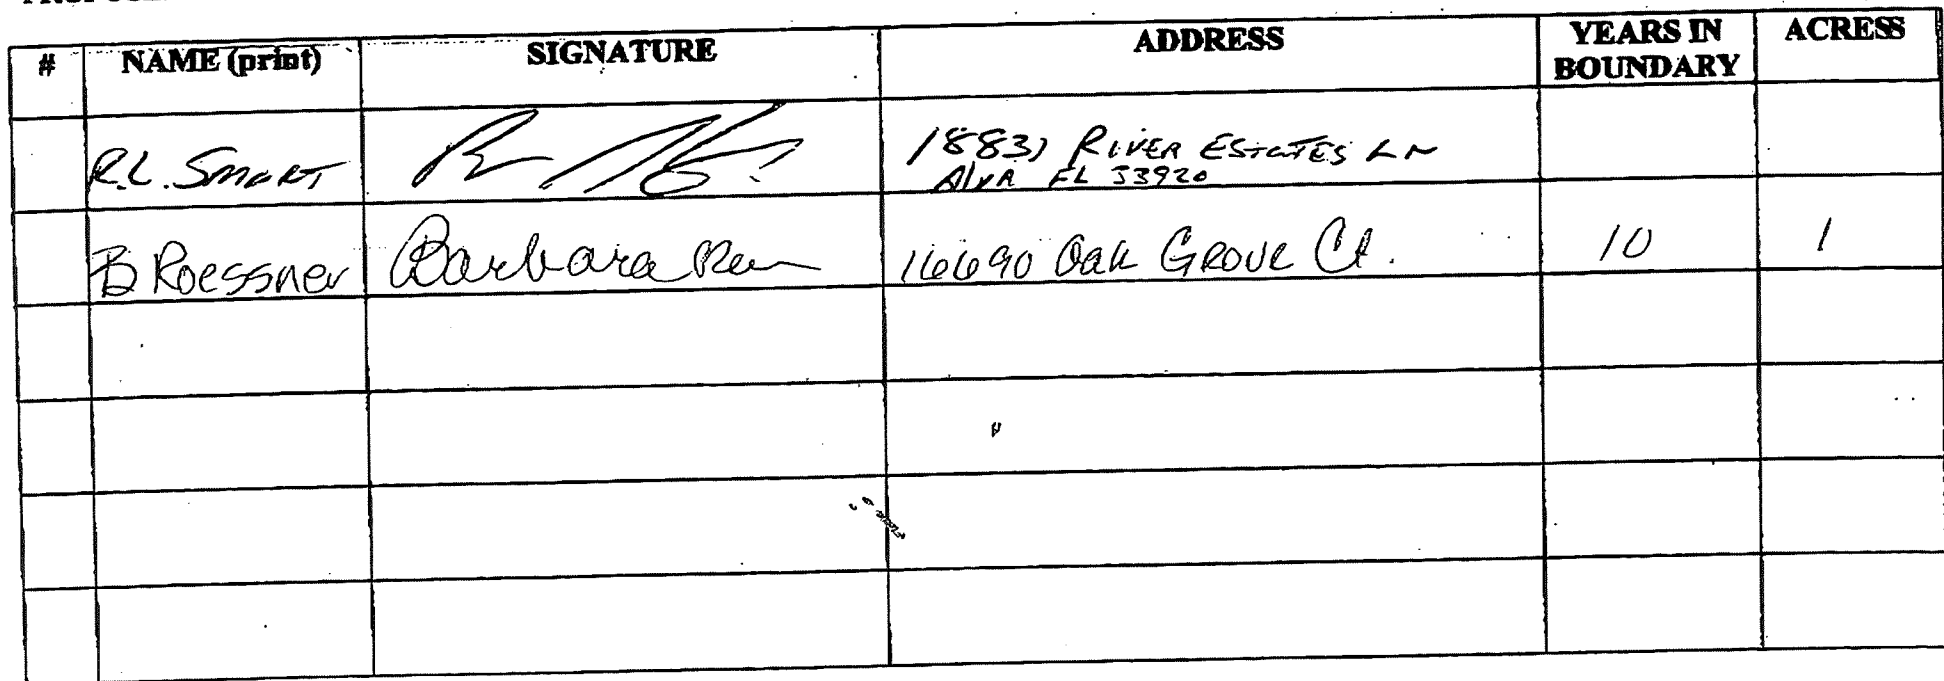 # NAME (print) SIGNATURE ADDRESS YEARS IN BOUNDARY ACRESS
R.L. SMART 18831 RIVER ESTATES LN
Alva FL 33920
B Roessner Barbara 16690 Oak Grove Ct. 10 1